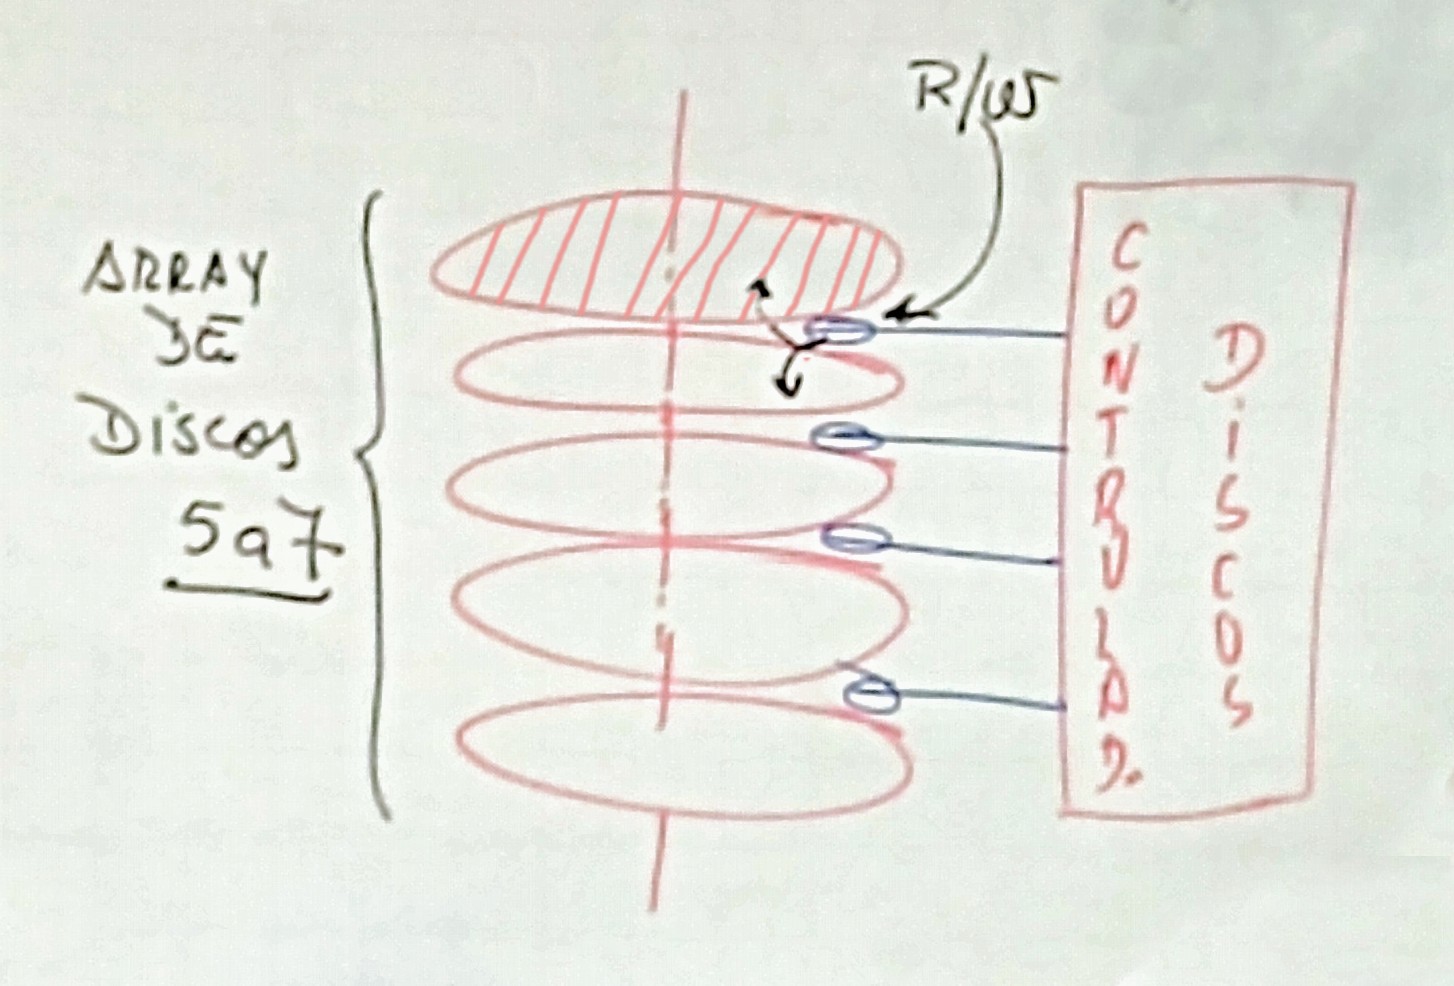 R/W
ARRAY
DE
Discos
5 a 7
CONTROLAD.
DISCOS